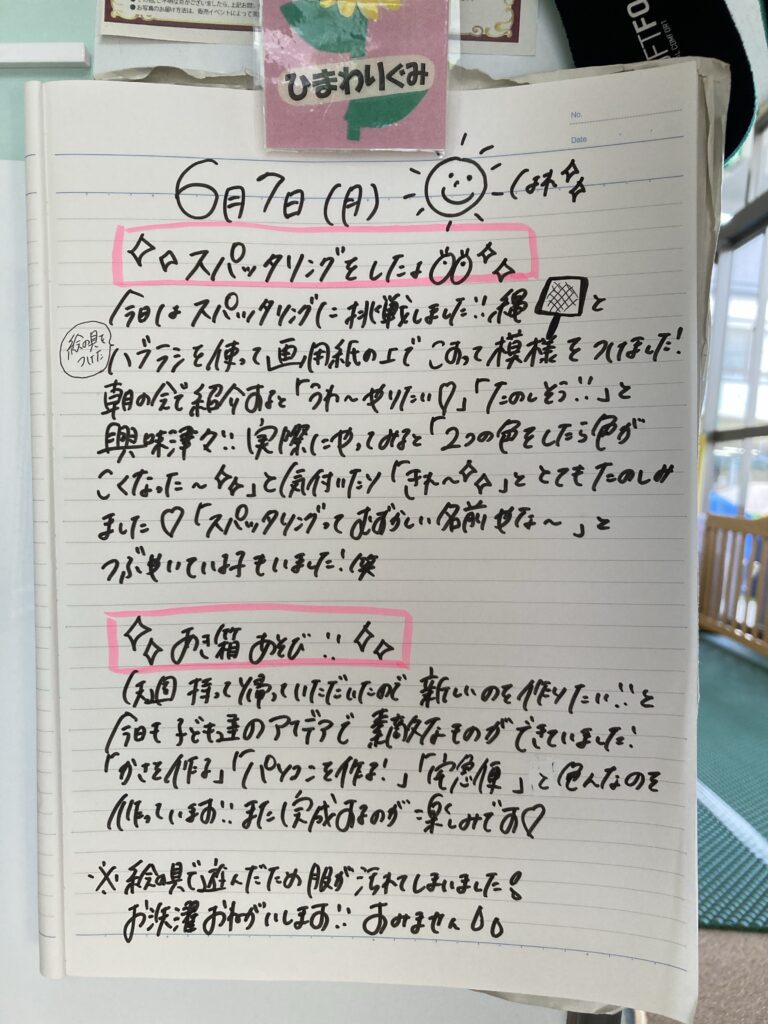 ●お写真のお届け方法は、販売イベントによって異
FTFO
COMFORT
ひまわりぐみ
No.
Date
6月7日(月) はれ
スパッタリングをしたよ
今日はスパッタリングに挑戦しました!!縄と
絵の具を
つけた
ハブラシを使って画用紙の上でこすって模様をつけました!
朝の会で紹介すると「うわ〜やりたい♡」「たのしそう!!」と
興味津々!!実際にやってみると「2つの色をしたら色が
こくなった〜」と気付いたり「きれ〜」ととてもたのしみ
ました♡「スパッタリングってむずかしい名前やな〜」と
つぶやいている子もいました!笑
あき箱あそび!!
先週持って帰っていただいたので新しいのを作りたい!!と
今日も子ども達のアイデアで素敵なものができていました!
「かさを作る」「パソコンを作る!」「宅急便」と色んなのを
作っています!!また完成するのが楽しみです♡
※絵の具で遊んだため服が汚れてしまいました!
お洗濯おねがいします!!すみません